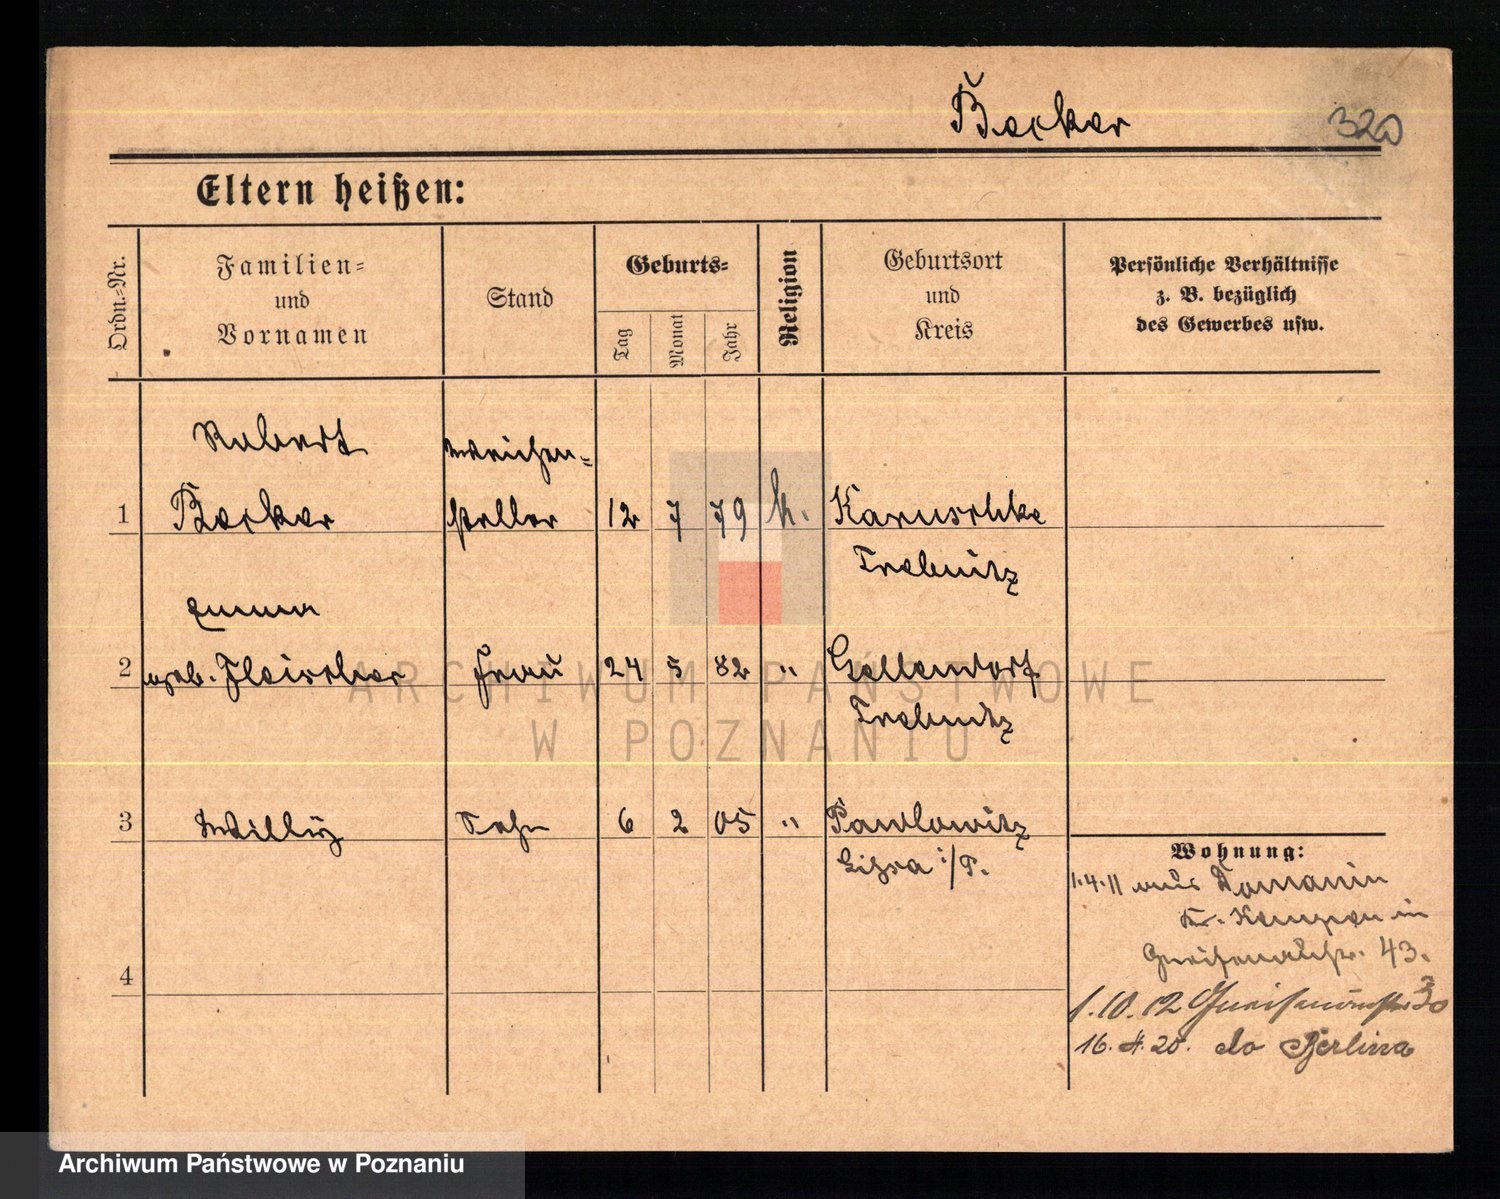 Becker
320
Eltern heißen:
Ordn.=Nr.
Familien=
und
Vornamen
Stand
Geburts=
Tag
Monat
Jahr
Religion
Geburtsort
und
Kreis
Persönliche Verhältnisse
z. B. bezüglich
des Gewerbes usw.
Robert Weichen=
1 Becker steller 12 7 79 k. Karuschke
Trebnitz
Emma
2 geb. Fleischer Frau 24 5 82 " Gellendorf
Trebnitz
3 Willy Sohn 6 2 05 " Pawlowitz
Lissa i/P.
Wohnung:
1.4.11 aus Domanin
Kr. Kempen in
Gneisenaustr. 43.
4
1.10.12 Gneisenaustr 30
16.4.20. do Berlina
ARCHIWUM PAŃSTWOWE
W POZNANIU
Archiwum Państwowe w Poznaniu